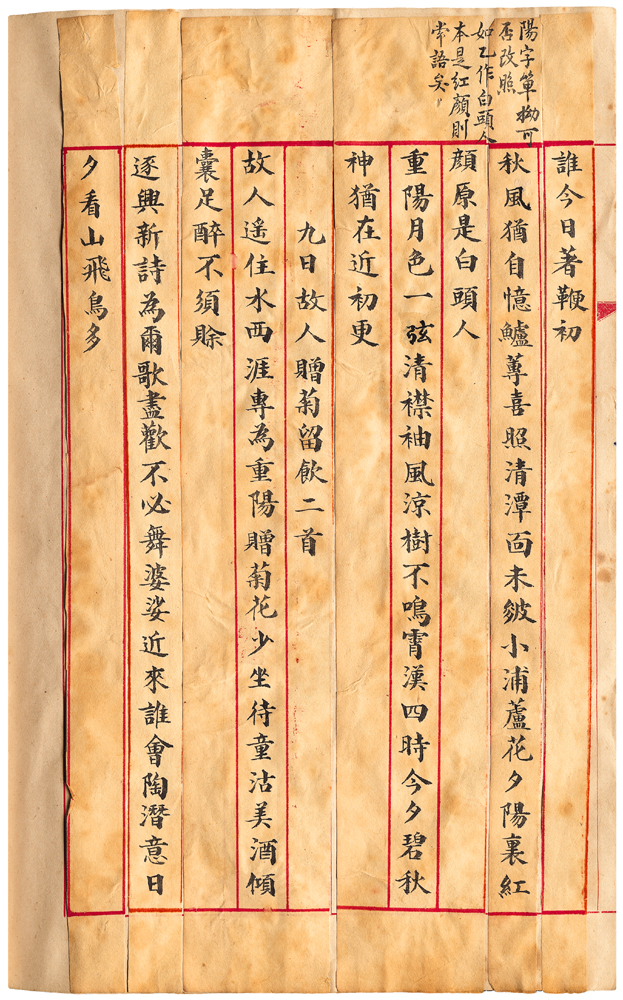 陽字單拗可
否改照
如乙作白頭人
本是紅顏則
常語矣
誰今日著鞭初
秋風猶自憶鱸蓴喜照清潭面未皴小浦蘆花夕陽裏紅
顏原是白頭人
重陽月色一弦清襟袖風涼樹不鳴霄漢四時今夕碧秋
神猶在近初更
九日故人贈菊留飲二首
故人遥住水西涯專為重陽贈菊花少坐待童沽美酒傾
囊足醉不須賒
逐興新詩為爾歌盡歡不必舞婆娑近來誰會陶潛意日
夕看山飛鳥多